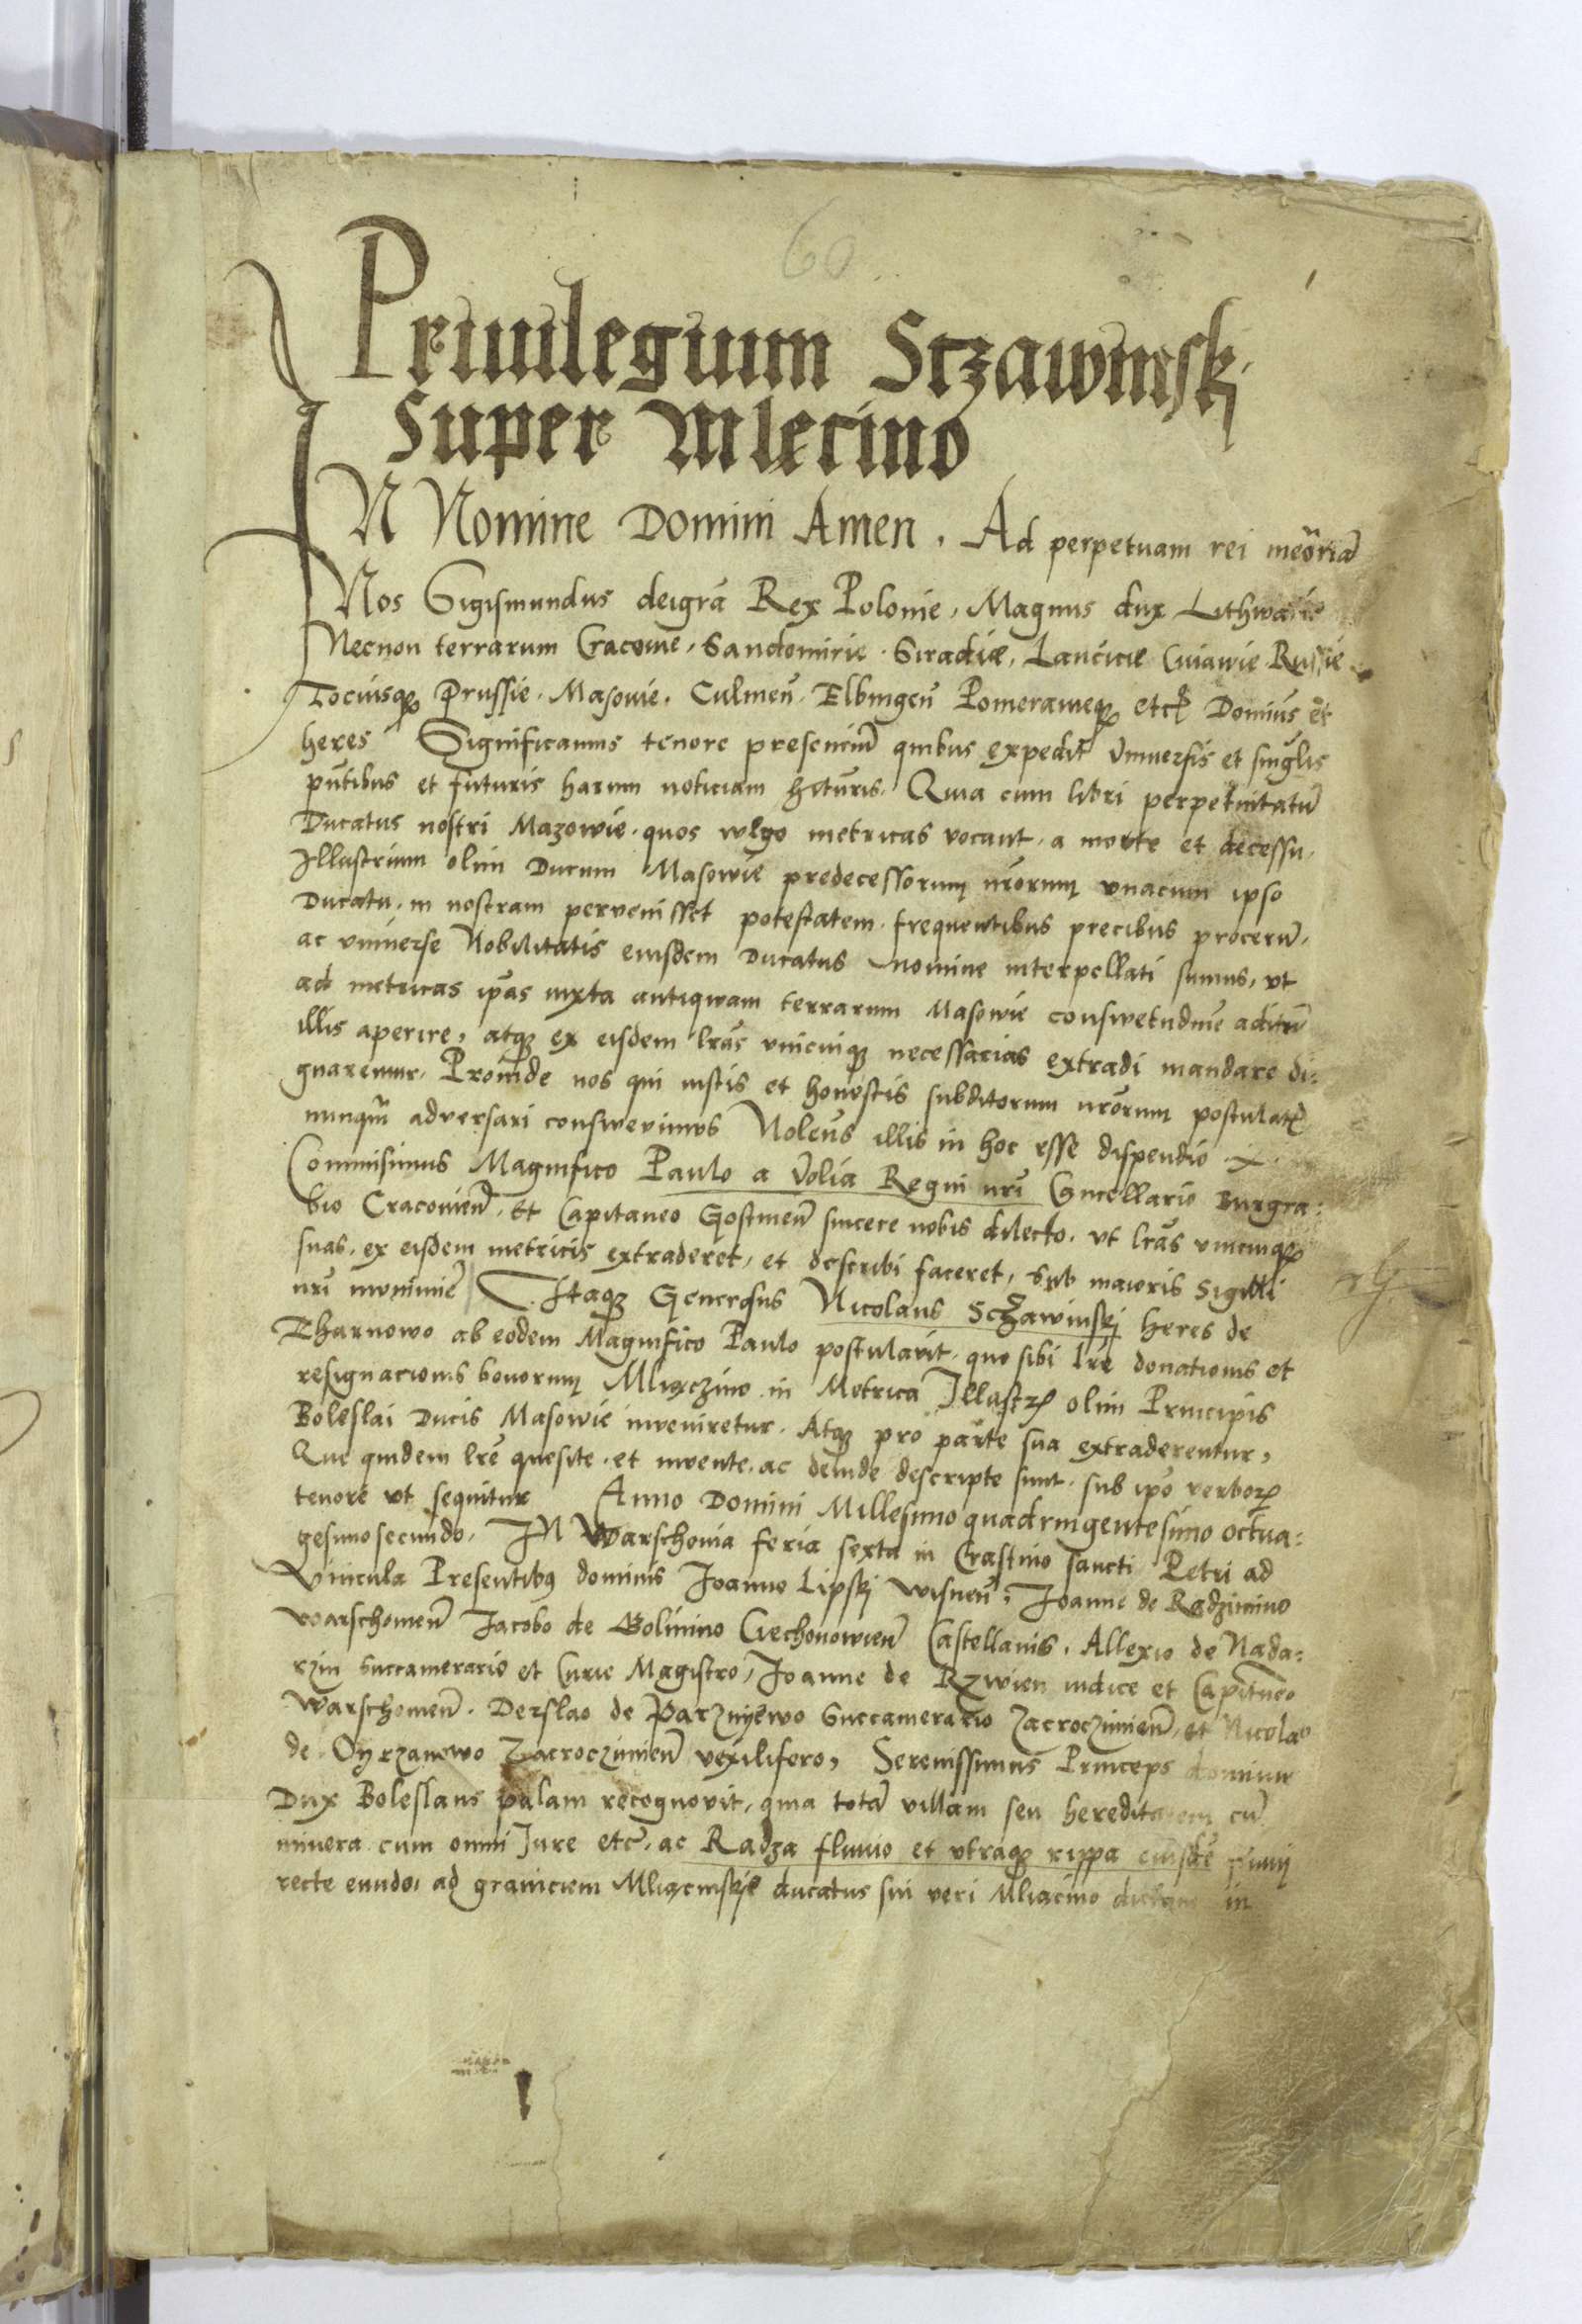 60
Priuilegium Sczawinskj
Super Mlecino
IN Nomine Domini Amen . Ad perpetuam rei meōriā
Nos Sigismundus deigrā Rex Polonie, Magnus dux Lithwanie
Necnon terrarum Cracovie, Sandomirie . Siradie, Lancicie Cuiawie Russie
Tociusqȝ Prussie . Masovie . Culmeñ . Elbingeñ Pomeranieqȝ etcꝭ Domiñs et
heres Significamus tenore presenciū quibus expedit vniuersis et singlis
pñtibus et futuris harum noticiam hituris. Quia cum libri perpetuitatū
Ducatus nostri Mazowie . quos wlgo metricas vocant . a morte et decessu .
Illustrium olim Ducum Masowie predecessorum nrorum vnacum ipso
Ducatu . in nostram pervenisset potestatem . frequentibus precibus procerū .
ac vniverse Nobilitatis eiusdem Ducatus nomine interpellati sumus, vt
ad metricas ipās iuxta antiqwam terrarum Masowie conswetudinē aditū
illis aperire, atqȝ ex eisdem lrās vnicuiqȝ necessarias extradi mandare di:
gnaremur. Proinde nos qui iustis et honestis subditorum nrorum postulatꝭ
nunqm̄ adversari conswevimus Noleñs illis in hoc esse dispendio .x.
Commisimus Magnifico Paulo a Volia Regni nrī Cancellario Burgra:
bio Cracovieñ . Et Capitaneo Gostineñ sincere nobis dilecto . vt lrās vnicuiqȝ
suas . ex eisdem metricis extraderet, et describi faceret, sub maioris Sigilli
nrī munimiē Itaqȝ Generosus Nicolaus Sczawinskj heres de
Tharnowo ab eodem Magnifico Paulo postularit . quo sibi lrē donationis et
resignacionis bonorum Mliączino in Metrica Illustrꝭ olim Principis
Boleslai Ducis Masowie inveniretur . Atqȝ pro parte sua extraderentur,
Que quidem lrē quesite . et invente . ac deinde descripte sunt . sub ipo verborꝝ
tenore vt sequitur Anno Domini Millesimo quadringentesimo octua:
gesimosecundo . In Warschovia feria sexta in Crastino sancti Petri ad
Vincula Presentibꝰ dominis Joanne Lipskj Wisneñ, Joanne de Radzimino
Warschovieñ Jacobo de Golimino Ciechonowieñ Castellanis . Allexio de Nada:
rzin Succamerario et Curie Magistro, Joanne de Rzwien iudice et Capitneo
Warschovieñ . Derslao de Parznyewo Succamerario Zacroczimieñ, et Nicolao
de Oyrzanowo Zacroczimieñ vexilifero, Serenissimus Princeps dominus
Dux Boleslaus palam recognovit, quia totā villam seu hereditatem cū
minera cum omni Jure etc̄ . ac Radza fluvio et vtraqȝ rippa eiusdē fluvij
recte eundo, ad graniciem Mliącinskye ducatus sui veri Mliacino in